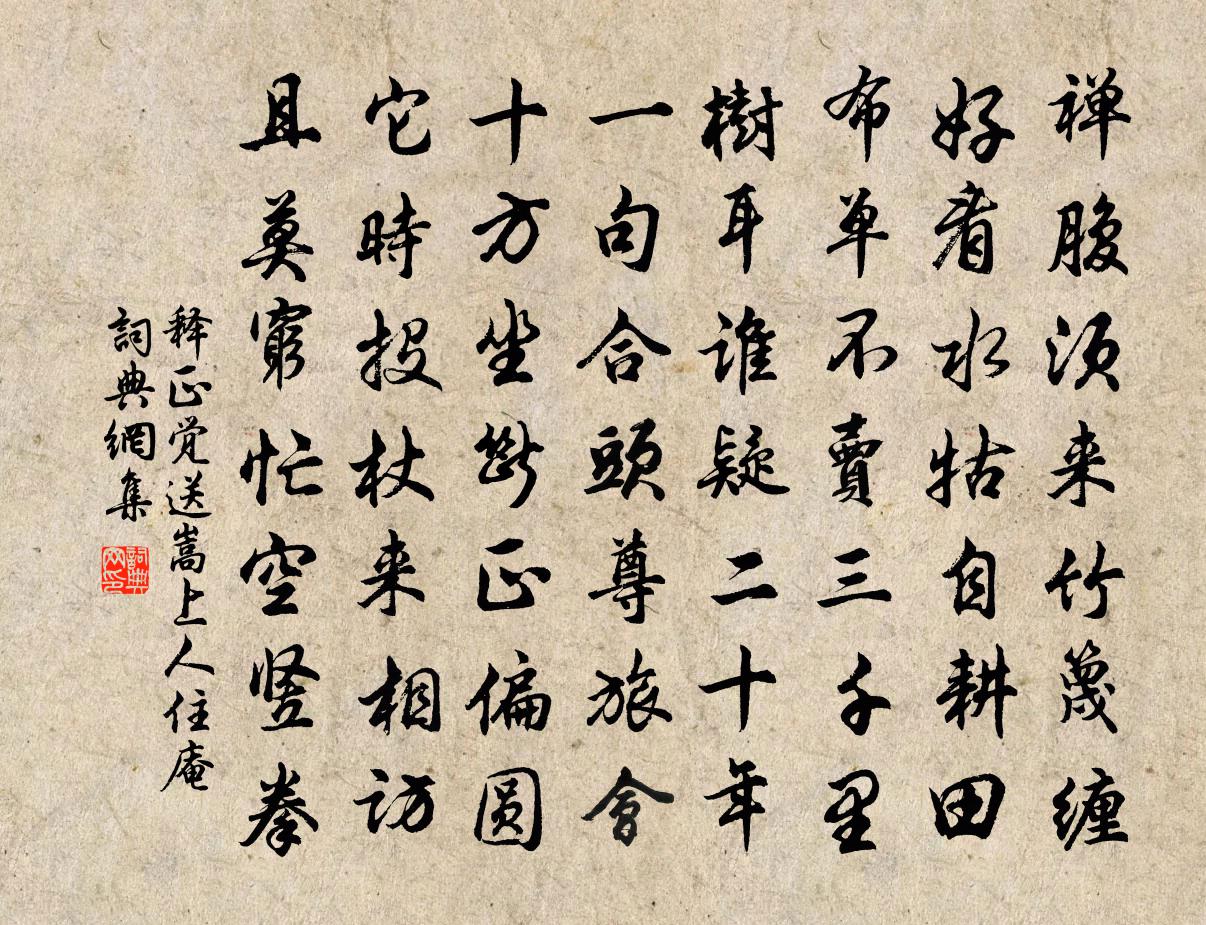 禅腹须来竹蔑缠
好看水牯自耕田
布单不賣三千里
樹耳谁疑二十年
一句合頭尊旅會
十方坐断正偏圆
它時投杖来相访
且莫窮忙空竖拳
释正觉送嵩上人住庵
詞典網集
詞典网印